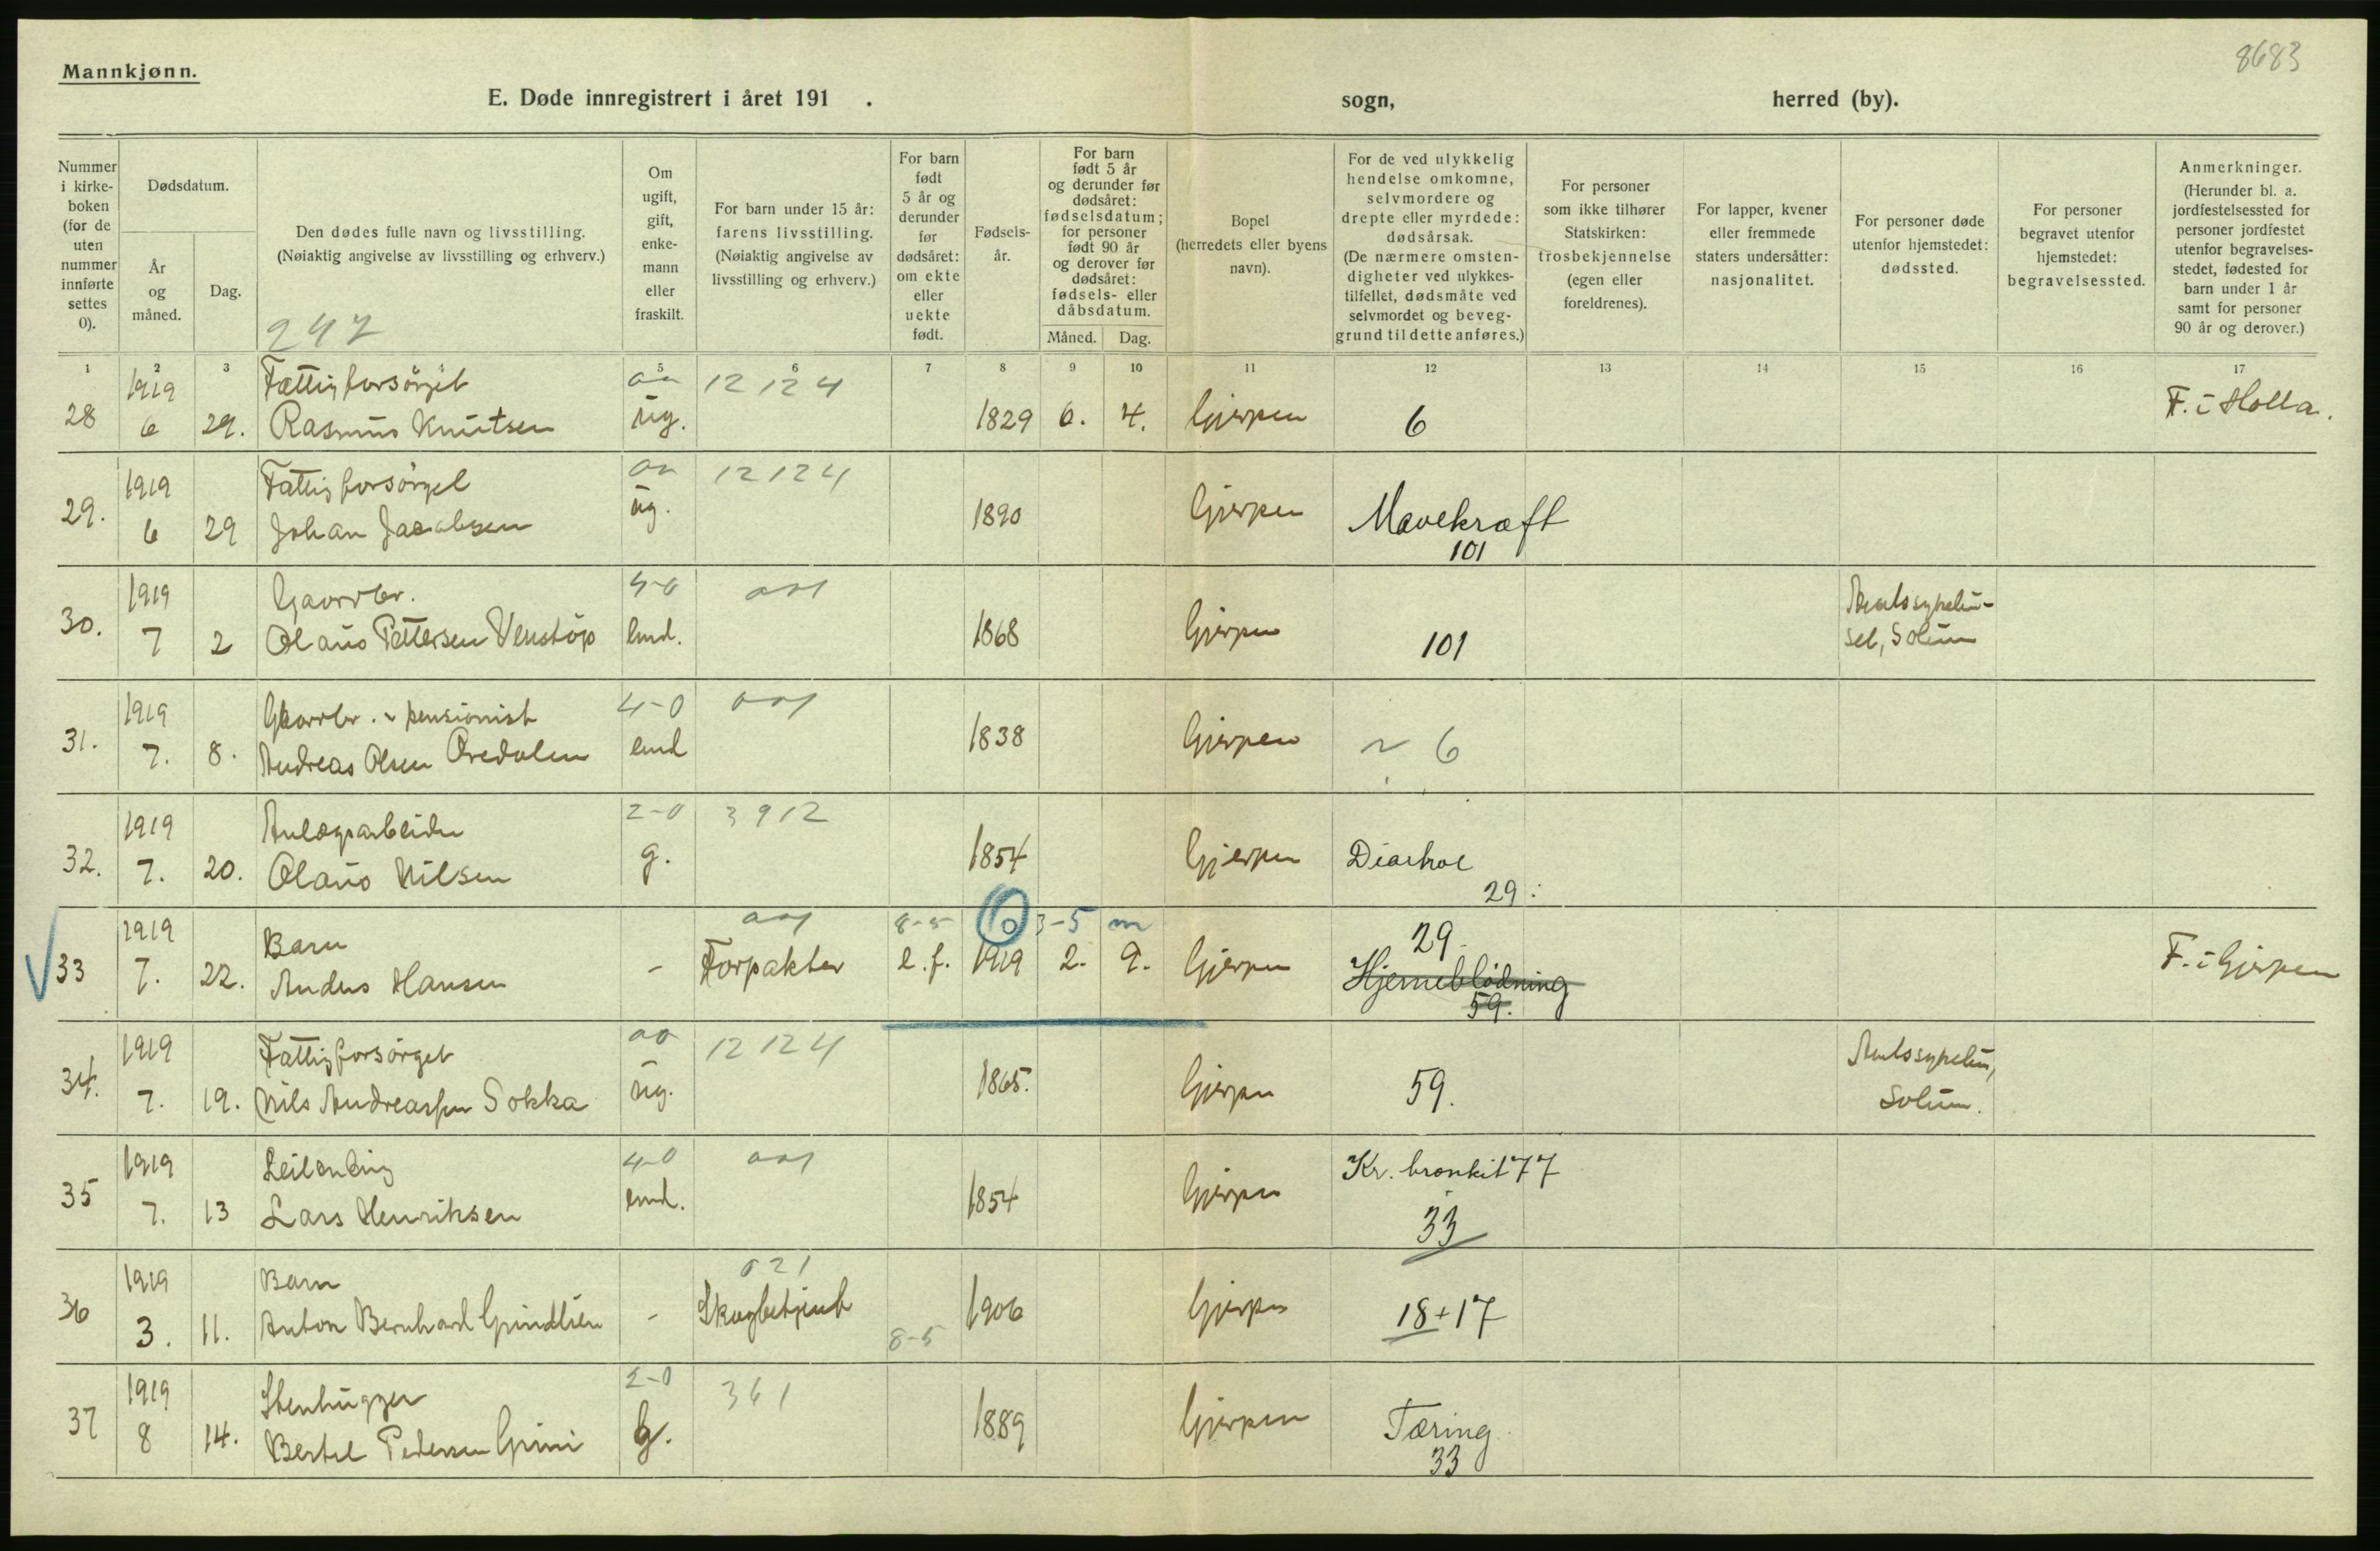 8683
Mannkjønn.
E. Døde innregistrert i året 191 . sogn, herred (by).
Nummer i kirkeboken (for de uten nummer innførte settes 0).
Dødsdatum.
År og måned.
Dag.
Den dødes fulle navn og livsstilling.
(Nøiaktig angivelse av livsstilling og erhverv.)
247
Om ugift, gift, enkemann eller fraskilt.
For barn under 15 år: farens livsstilling.
(Nøiaktig angivelse av livsstilling og erhverv.)
For barn født 5 år og derunder før dødsåret: om ekte eller uekte født.
Fødselsår.
For barn født 5 år og derunder før dødsåret: fødselsdatum; for personer født 90 år og derover før dødsåret: fødsels- eller dåbsdatum.
Måned. Dag.
Bopel (herredets eller byens navn).
For de ved ulykkelig hendelse omkomne, selvmordere og drepte eller myrdede: dødsårsak.
(De nærmere omstendigheter ved ulykkestilfellet, dødsmåte ved selvmordet og beveggrund til dette anføres.)
For personer som ikke tilhører Statskirken: trosbekjennelse (egen eller foreldrenes).
For lapper, kvener eller fremmede staters undersåtter: nasjonalitet.
For personer døde utenfor hjemstedet: dødssted.
For personer begravet utenfor hjemstedet: begravelsessted.
Anmerkninger.
(Herunder bl. a. jordfestelsessted for personer jordfestet utenfor begravelsesstedet, fødested for barn under 1 år samt for personer 90 år og derover.)
1 2 3 5 6 7 8 9 10 11 12 13 14 15 16 17
1919 Fattigforsørget 12124
28 6 29. Rasmus Knutsen ug. 1829 6. 4. Gjerpen 6 F. i Holla.
1919 Fattigforsørget 12124
29. 6 29 Johan Jacobsen ug. 1890 Gjerpen Mavekræft
101
1919 Gaarbr. 4-0
30. 7 2 Olaus Pettersen Venstøp emd. 1868 Gjerpen 101 Amtssykehusel, Solum
1919 Gaarbr. pensionist 4-0
31. 7. 8. Andreas Olsen emd 1838 Gjerpen 6
1919 Anlægsarbeider 2-0 3912
32. 7. 20. Olaus Nilsen g. 1854 Gjerpen Diarhoe
29.
1919 Barn 8-5 0 3-5 m 29.
33 7. 22. Anders Hansen - Forpakter e.f. 1919 2. 9. Gjerpen Hjerneblødning F. i Gjerpen
59.
1919 Fattigforsørget 12124
34. 7. 19. Nils Andreassen Sokka ug. 1865. Gjerpen 59. Amtssykehus, Solum.
1919 Leilending 4-0 Kr. bronkit 77
35 7. 13 Lars Henriksen emd. 1854 Gjerpen 33
1919 Barn 021
36 3. 11. Anton Bernhard Grindlien - Skogbetjent 8-5 1906 Gjerpen 18+17
1919 Stenhugger 2-0 361
37 8 14. Bertel Pedersen Grini g. 1889 Gjerpen Tæring
33